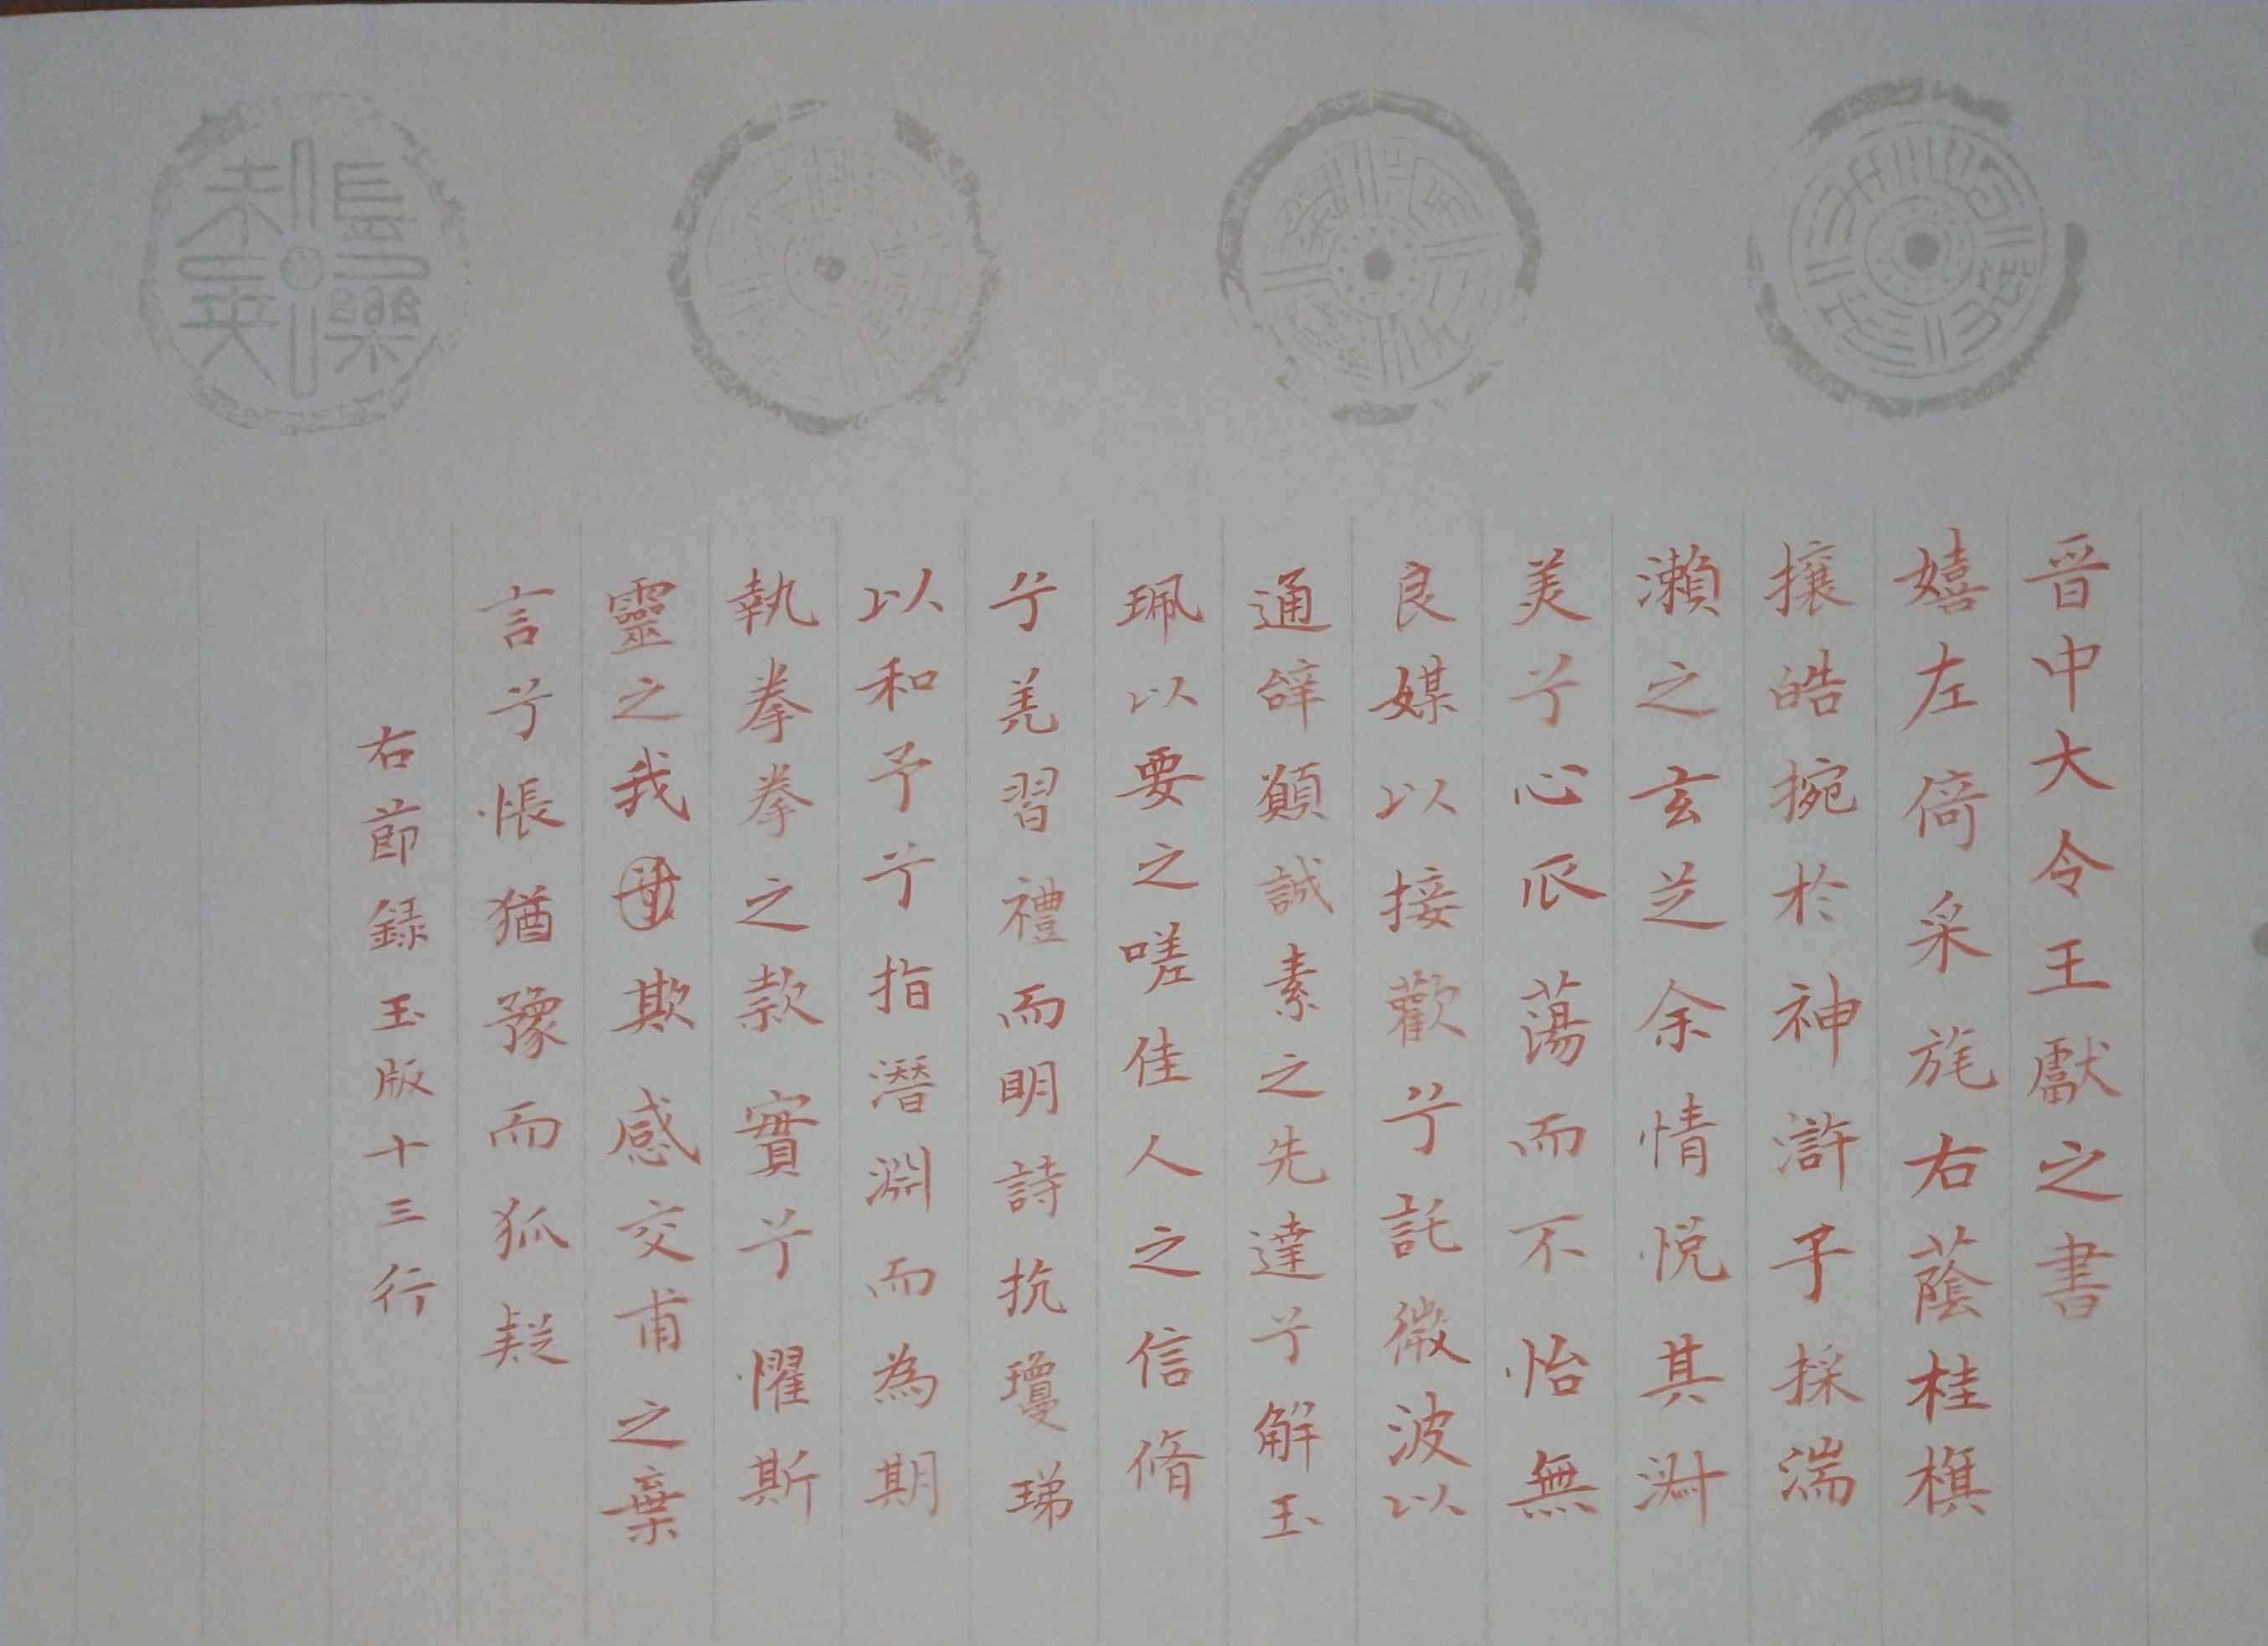 晉中大令王獻之書
嬉左倚采旄右蔭桂旗
攘皓捥於神滸予採湍
瀨之玄芝余情悅其淑
美兮心𠂢蕩而不怡無
良媒以接歡兮託微波以
通辭願誠素之先達兮解玉
珮以要之嗟佳人之信脩
兮羌習禮而明詩抗瓊珶
以和予兮指潛淵而為期
執拳拳之款實兮懼斯
靈之我欺感交甫之棄
言兮悵猶豫而狐疑
右節錄玉版十三行
長樂未央